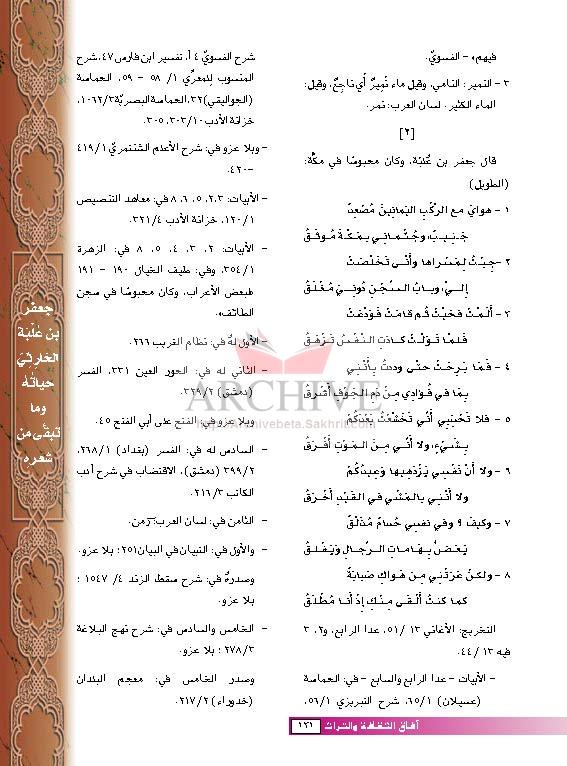 فيهم» – الفسويّ.
٣ – النمير: النامي، وقيل ماء نَميرٌ أي ناجِعٌ، وقيل:
الماء الكثير. لسان العرب: نمر.
[٢]
قال جعفر بن عُلبَة، وكان محبوسًا في مكّة:
(الطويل)
١ – هوايَ مع الرَّكْبِ اليَمَانينَ مُصْعِدٌ
جَنيبٌ، وجُثماني بِمَكَّةَ مُوثَقُ
٢ – عَجِبْتُ لِمَسراها وأَنَّى تَخَلَّصَتْ
إليَّ، وبابُ السِّجْنِ دُونيَ مُغْلَقُ
٣ – أَلَمَّتْ فَحَيَّتْ ثُم قامَتْ فَوَدَّعَتْ
فَلمَّا تَوَلَّتْ كادَتِ النَّفْسُ تَزْهَقُ
٤ – فَمَا بَرِحَتْ حتى وددتُ بِأنَّني
بِمَا في فُؤادي مِنْ دَمِ الجَوْفِ أَشْرَقُ
٥ – فلا تَحْسَبي أنّي تَخَشَّعْتُ بَعْدَكُمْ
بِشَيْءٍ، ولا أنِّي مِنَ المَوْتِ أَفْرَقُ
٦ – ولا أنَّ نَفْسي يَزْدَهيها وَعيدُكُمْ
ولا أَنَّني بالمَشْيِ في القَيْدِ أَخْرَقُ
٧ – وكيفَ ؟ وفي نفسي حُسامٌ مُذَلَّقٌ
يَعَضُّ بِهاماتِ الرِّجالِ وَيَعْلَقُ
٨ – ولكنْ عَرَتْني مِن هَواكِ صَبابَةٌ
كما كنتُ أَلْقَى مِنْكِ إِذْ أنا مُطْلَقُ
التخريج: الأغاني ١٣ /٥١، عدا الرابع، و٢، ٣
فيه ١٣ /٤٤.
– الأبيات – عدا الرابع والسابع – في: الحماسة
(عسيلان) ٦٥/١، شرح التبريزي ٥٦/١،
شرح الفسويّ ٤ أ، تفسير ابن فارس ٤٧، شرح
المنسوب للمعرّي ١/ ٥٨ – ٥٩، الحماسة
(الجواليقي) ٣٢، الحماسة البصريّة ١٠٦٢/٣،
خزانة الأدب ٣٠٣/١٠، ٣٠٥.
– وبلا عزو في: شرح الأعلم الشنتمري ٤١٩/١
–٤٢٠.
– الأبيات: ٢،٣، ٥، ٦، ٨ في: معاهد التنصيص
١٢٠/١، خزانة الأدب ٣٢١/٤.
– الأبيات: ٢، ٣، ٤، ٥، ٨ في: الزهرة
٣٥٤/١، وفي: طيف الخيال ١٩٠ – ١٩١
«لبعض الأعراب، وكان محبوسًا في سجن
الطائف».
– الأول لهُ في: نظام الغريب ٢٦٦.
– الثاني له في: الحور العين ٣٣١، الفسر
(دمشق) ٣٢٩/٢.
وبلا عزو في: الفتح على أبي الفتح ٤٥.
– السادس له في: الفسر (بغداد) ٢٦٨/١،
٣٩٩/٢ (دمشق)، الاقتضاب في شرح أدب
الكاتب ٢١٦/٣.
– الثامن في: لسان العرب: ضمن.
– والأول في: التبيان في البيان ٢٥١؛ بلا عزو.
وصدرهُ في: شرح سقط الزند ٤/ ١٥٤٧ ؛
بلا عزو.
– الخامس والسادس في: شرح نهج البلاغة
٢٧٨/٣ ؛ بلا عزو.
وصدر الخامس في: معجم البلدان
(خدوراء) ٢١٧/٢.
جعفر
بن عُلْبَة
الحَارِثِيّ
حياتُه
وما
تَبقَّى من
شعره
ARCHIVE
http://Archivebeta.Sakhrit.com
آفاق الثقافة والتراث ١٢١